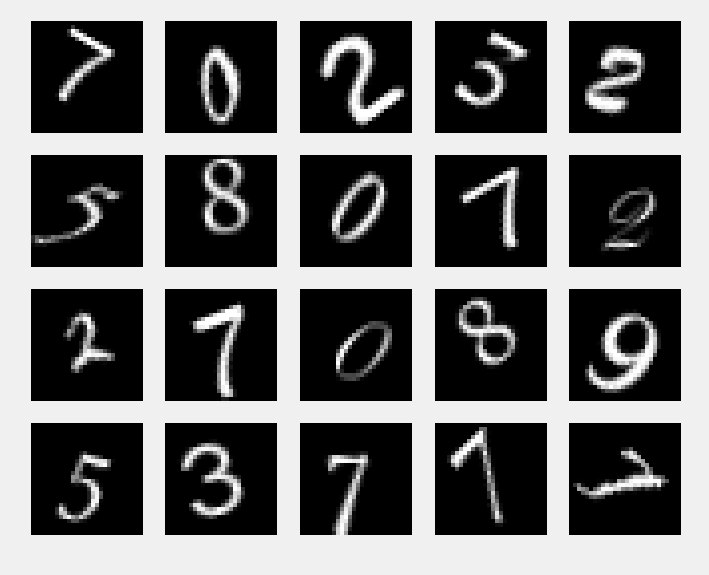 7 0 2 5 2
5 8 0 7 2
2 7 0 8 9
5 3 7 1